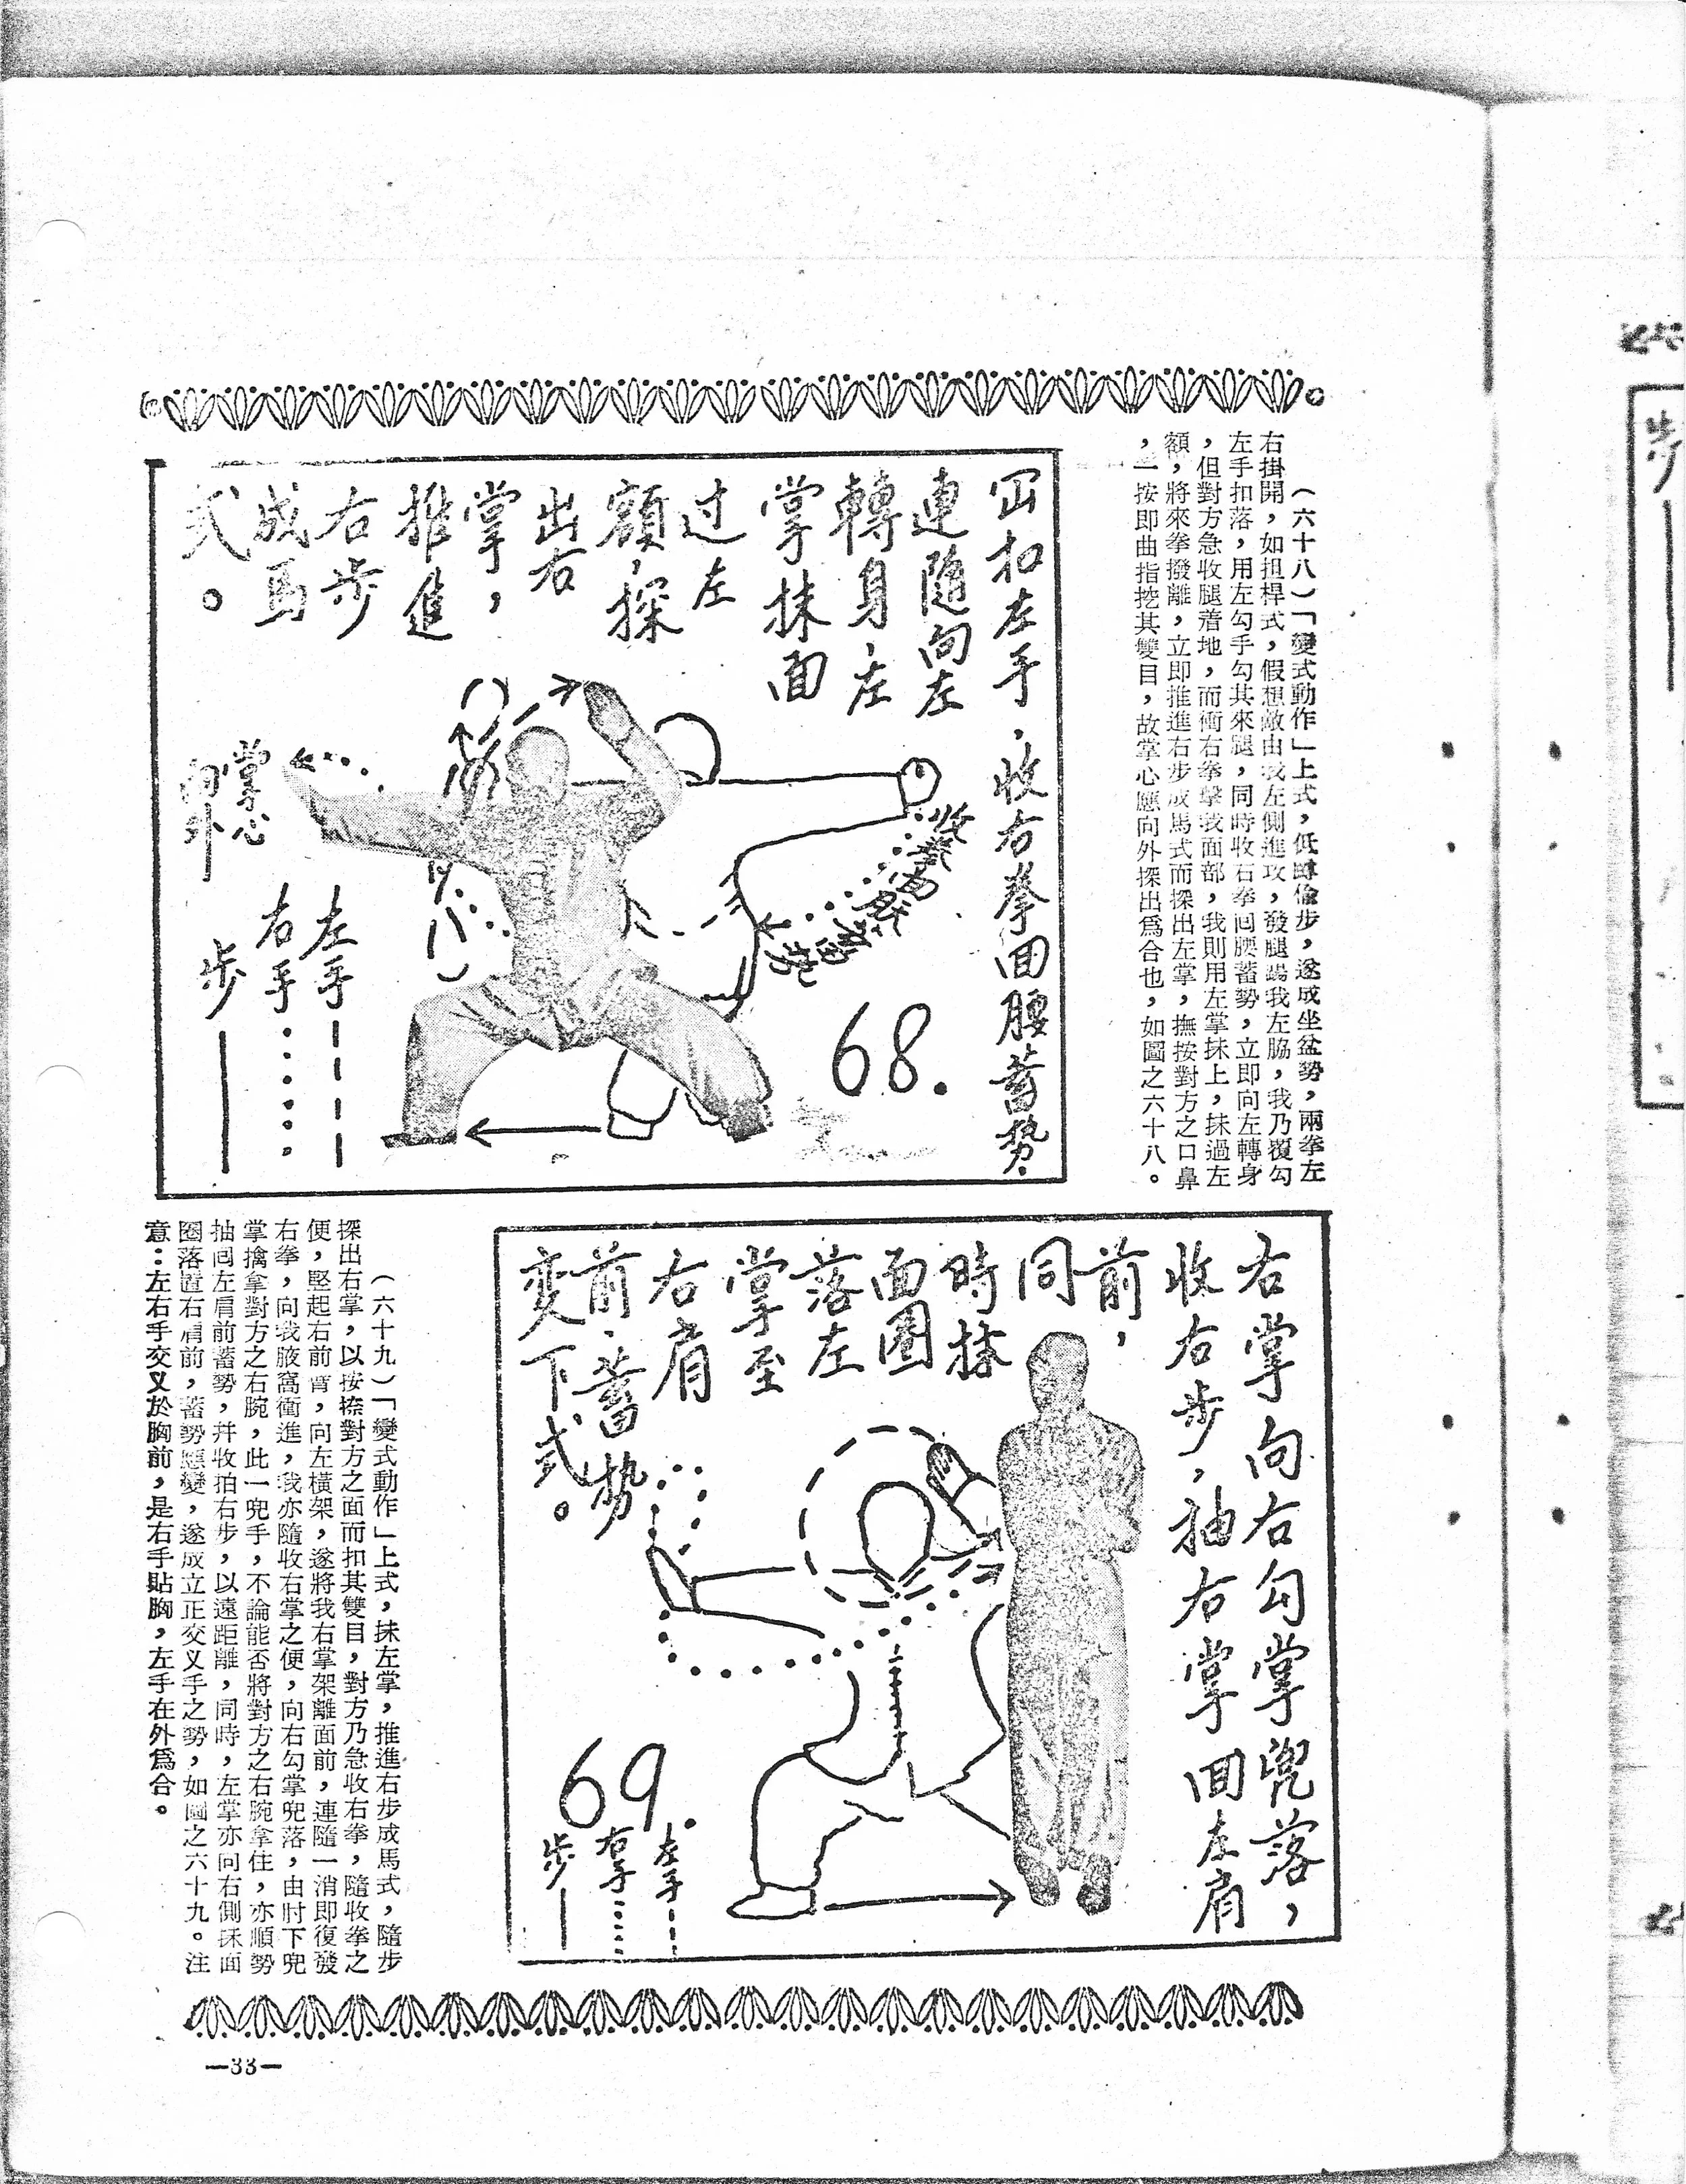 （六十八）「變式動作」上式，低蹲偸步，遂成坐盆勢，兩拳左
右掛開，如担桿式，假想敵由我左側進攻，發腿踢我左脇，我乃覆勾
左手扣落，用左勾手勾其來腿，同時收右拳囘腰蓄勢，立即向左轉身
，但對方急收腿着地，而衝右拳擊我面部，我則用左掌抹上，抹過左
額，將來拳撥離，立即推進右步成馬式而探出左掌，撫按對方之口鼻
，一按即曲指挖其雙目，故掌心應向外探出爲合也，如圖之六十八。
扣左手，收右拳回腰蓄勢．
連隨向左
轉身，左
掌抹面
过左
額，探
出右
掌，
推進
右步
成馬
式。
掌心
向外
左手
右手
步
68.
右掌向右勾掌兜落，
收右步，抽右掌回左肩
前，
同
時抹
面圈
落左
掌至
右肩
前．蓄勢
变下式。
69.
左手
右手
步
（六十九）「變式動作」上式，抹左掌，推進右步成馬式，隨步
探出右掌，以按捺對方之面而扣其雙目，對方乃急收右拳，隨收拳之
便，竪起右前臂，向左橫架，遂將我右掌架離面前，連隨一消即復發
右拳，向我腋窩衝進，我亦隨收右掌之便，向右勾掌兜落，由肘下兜
掌擒拿對方之右腕，此一兜手，不論能否將對方之右腕拿住，亦順勢
抽囘左肩前蓄勢，幷收拍右步，以遠距離，同時，左掌亦向右側抹面
圈落置右肩前，蓄勢應變，遂成立正交叉手之勢，如圖之六十九。注
意：左右手交叉於胸前，是右手貼胸，左手在外爲合。
—33—
步